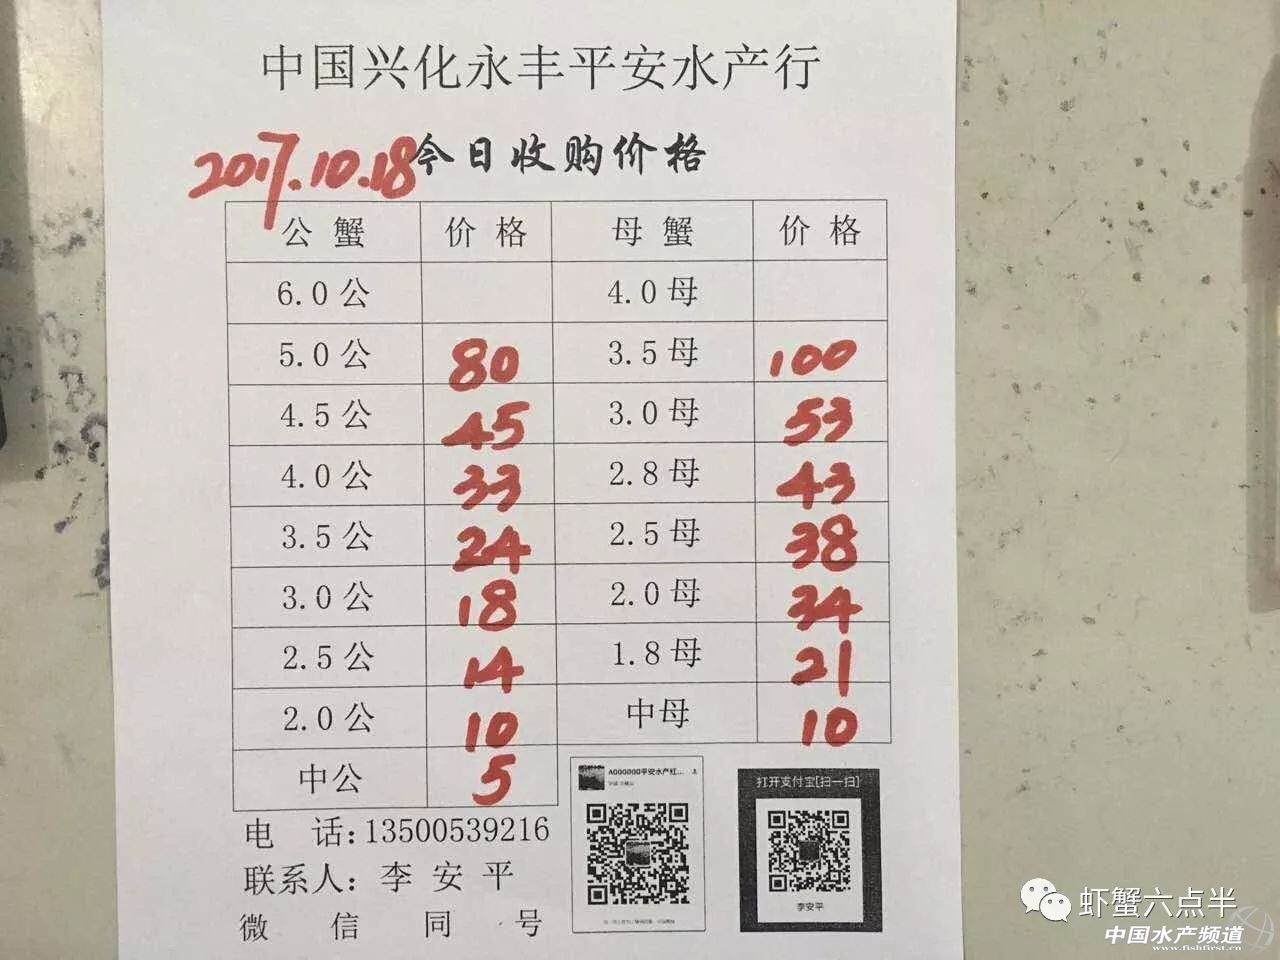 中国兴化永丰平安水产行
2017.10.18今日收购价格
公蟹 价格 母蟹 价格
6.0公 4.0母
5.0公 80 3.5母 100
4.5公 45 3.0母 53
4.0公 33 2.8母 43
3.5公 24 2.5母 38
3.0公 18 2.0母 34
2.5公 14 1.8母 21
2.0公 10 中母 10
中公 5
A000000平安水产红...
打开支付宝[扫一扫]
李安平
电 话:13500539216
联系人: 李安平
微信同号
虾蟹六点半
中国水产频道
www.fishfirst.cn